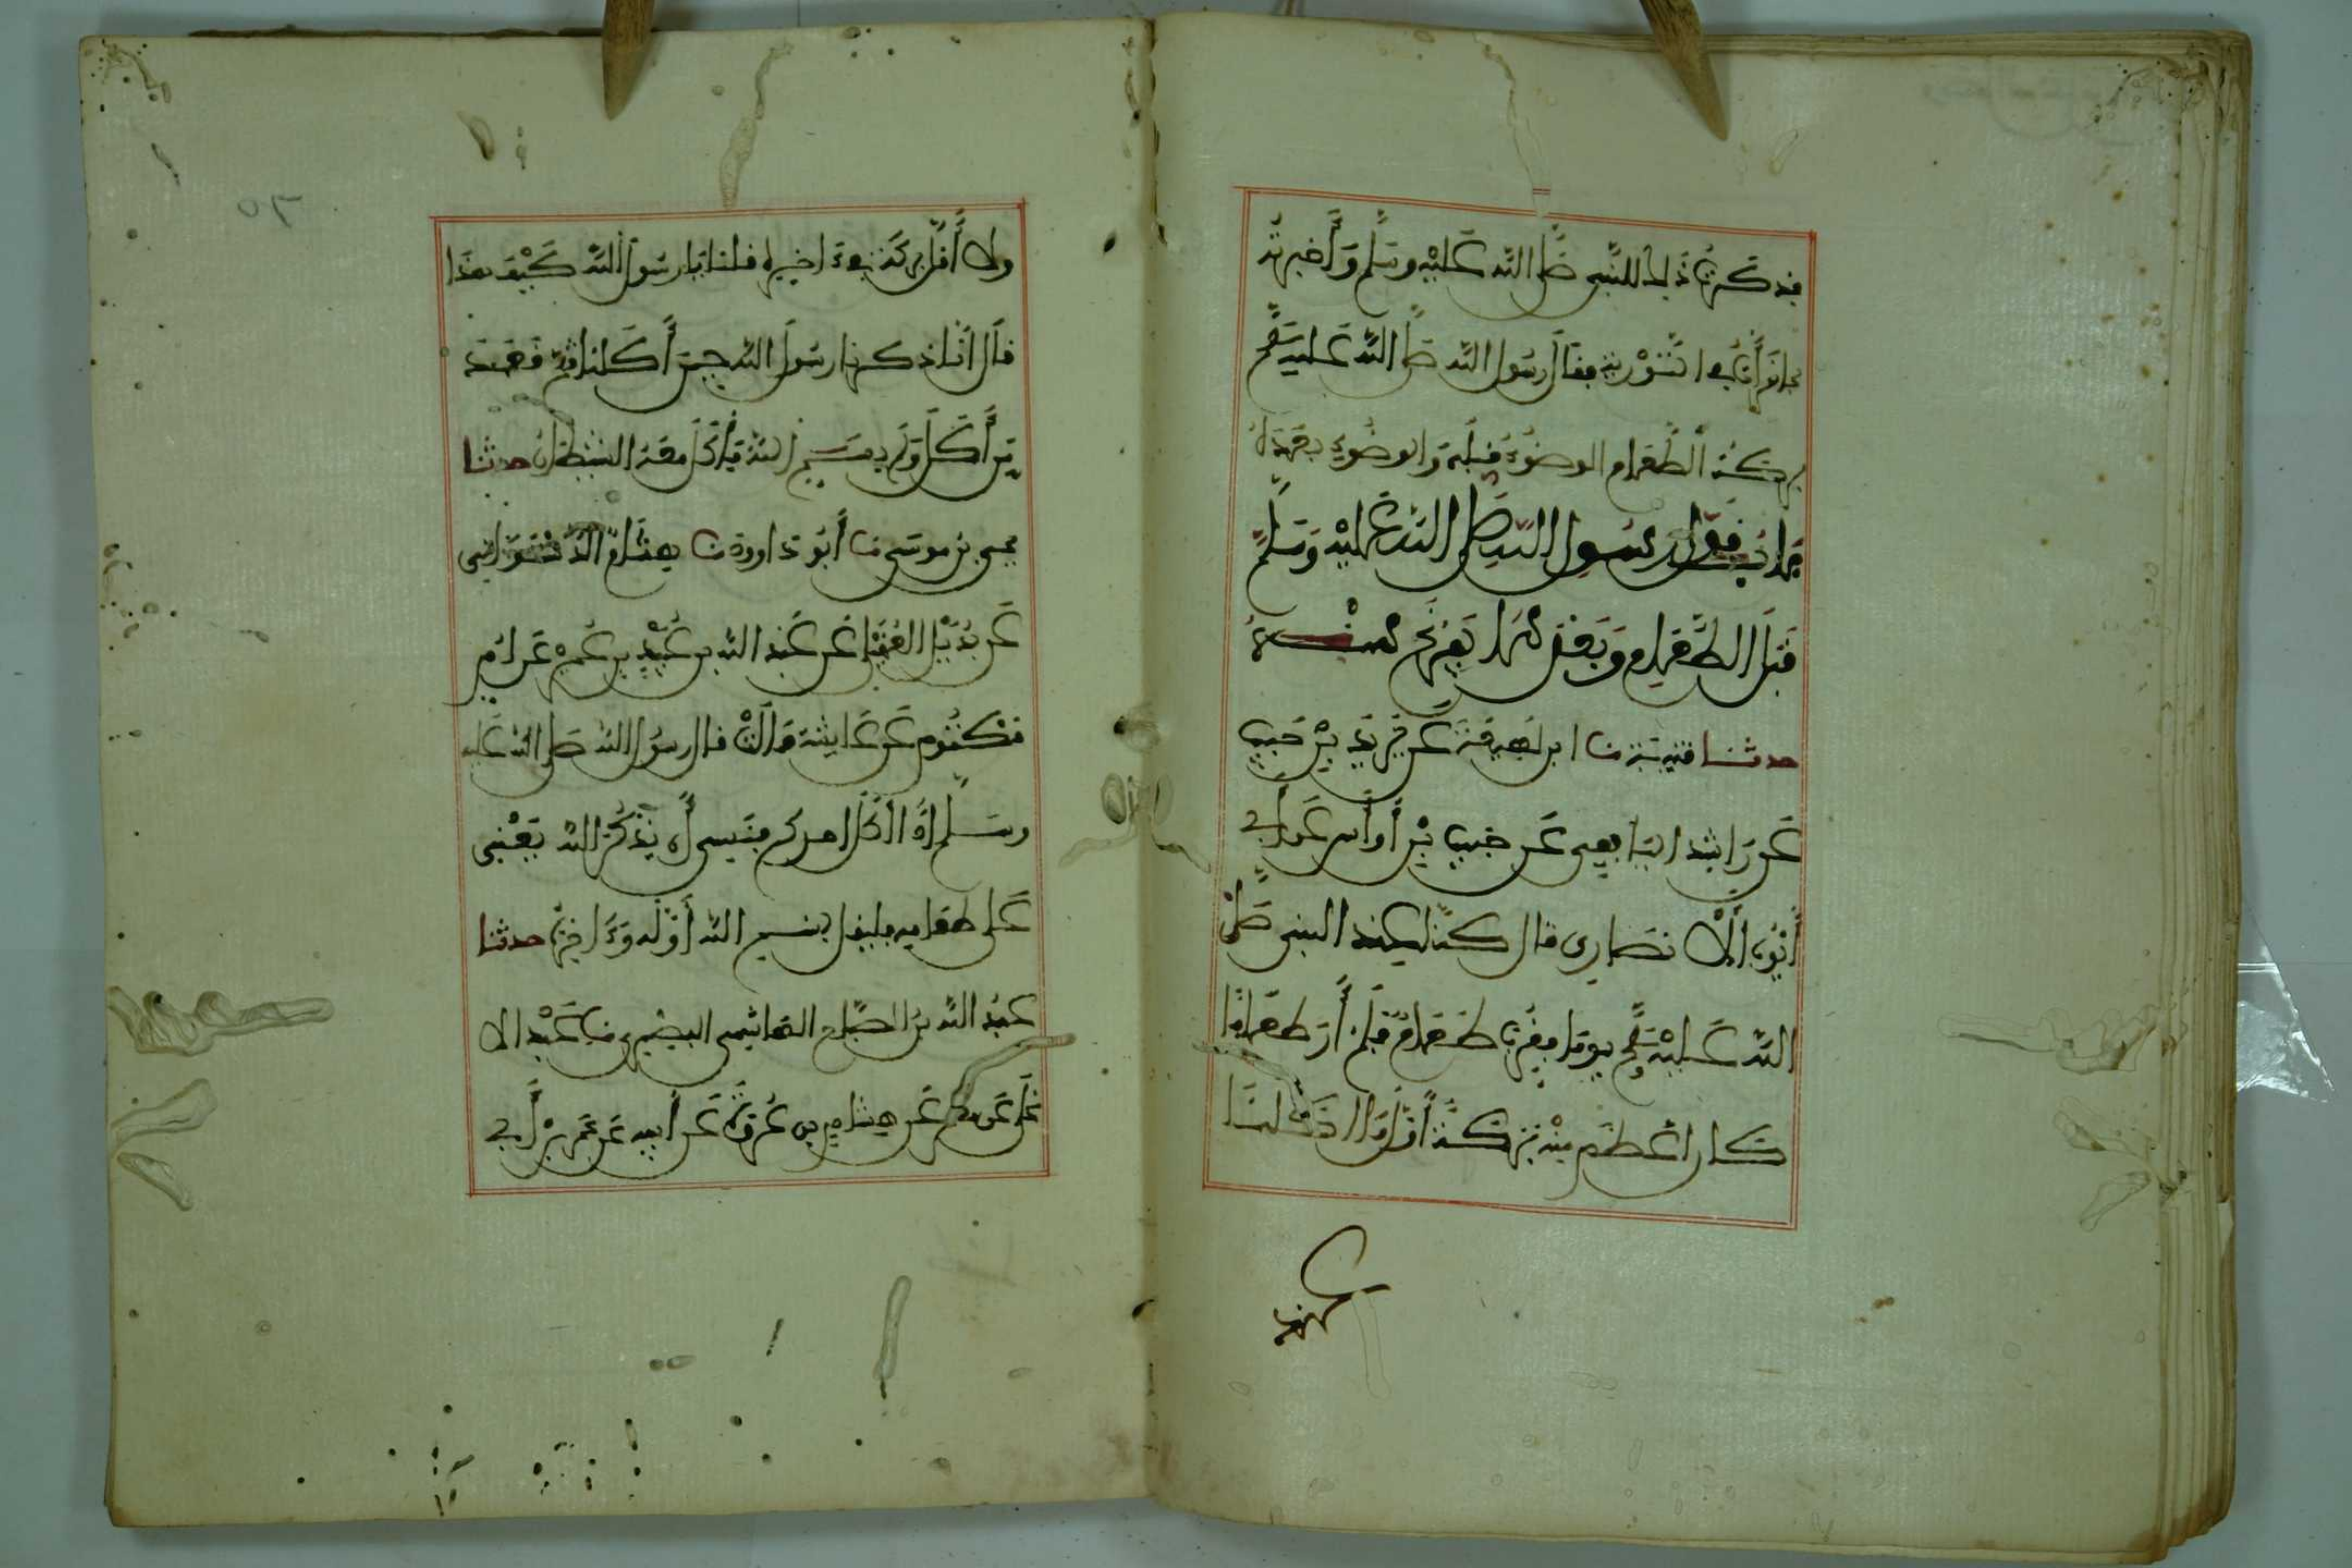 فذكرت ذلك للنبي صلى الله عليه وسلم وأخبرته
بما قرأت في التورية فقال رسول الله صلى الله عليه وسلم
بركة الطعام الوضوء قبله والوضوء بعده
باب قول رسول الله صلى الله عليه وسلم
قبل الطعام وبعد ما يفرغ منه
حدثنا قتيبة نا ابن لهيعة عن يزيد بن حبيب
عن راشد اليافعي عن حبيب بن أوس عن أبي
أيوب الأنصاري قال كنا عند النبي صلى
الله عليه وسلم يوما فقرب طعام فلم أر طعاما
كان أعظم بركة منه أول ما أكلنا
ولا أقل بركة في ءاخره قلنا يا رسول الله كيف هذا
قال انا ذكرنا رسول الله حين أكلنا ثم قعد
من أكل ولم يسم الله فأكل معه الشيطان حدثنا
يحيى بن موسى نا أبو داوود نا هشام الدستوائي
عن بديل العقيلي عن عبد الله بن عبيد بن عمير عن ام
كلثوم عن عايشة قالت قال رسول الله صلى الله عليه
وسلم اذا أكل احدكم فنسي أن يذكر الله يعني
على طعامه فليقل بسم الله أوله وءاخره حدثنا
عبد الله بن الصباح الهاشمي البصري نا عبد الا
على عن معمر عن هشام بن عروة عن أبيه عن عمر بن أبي